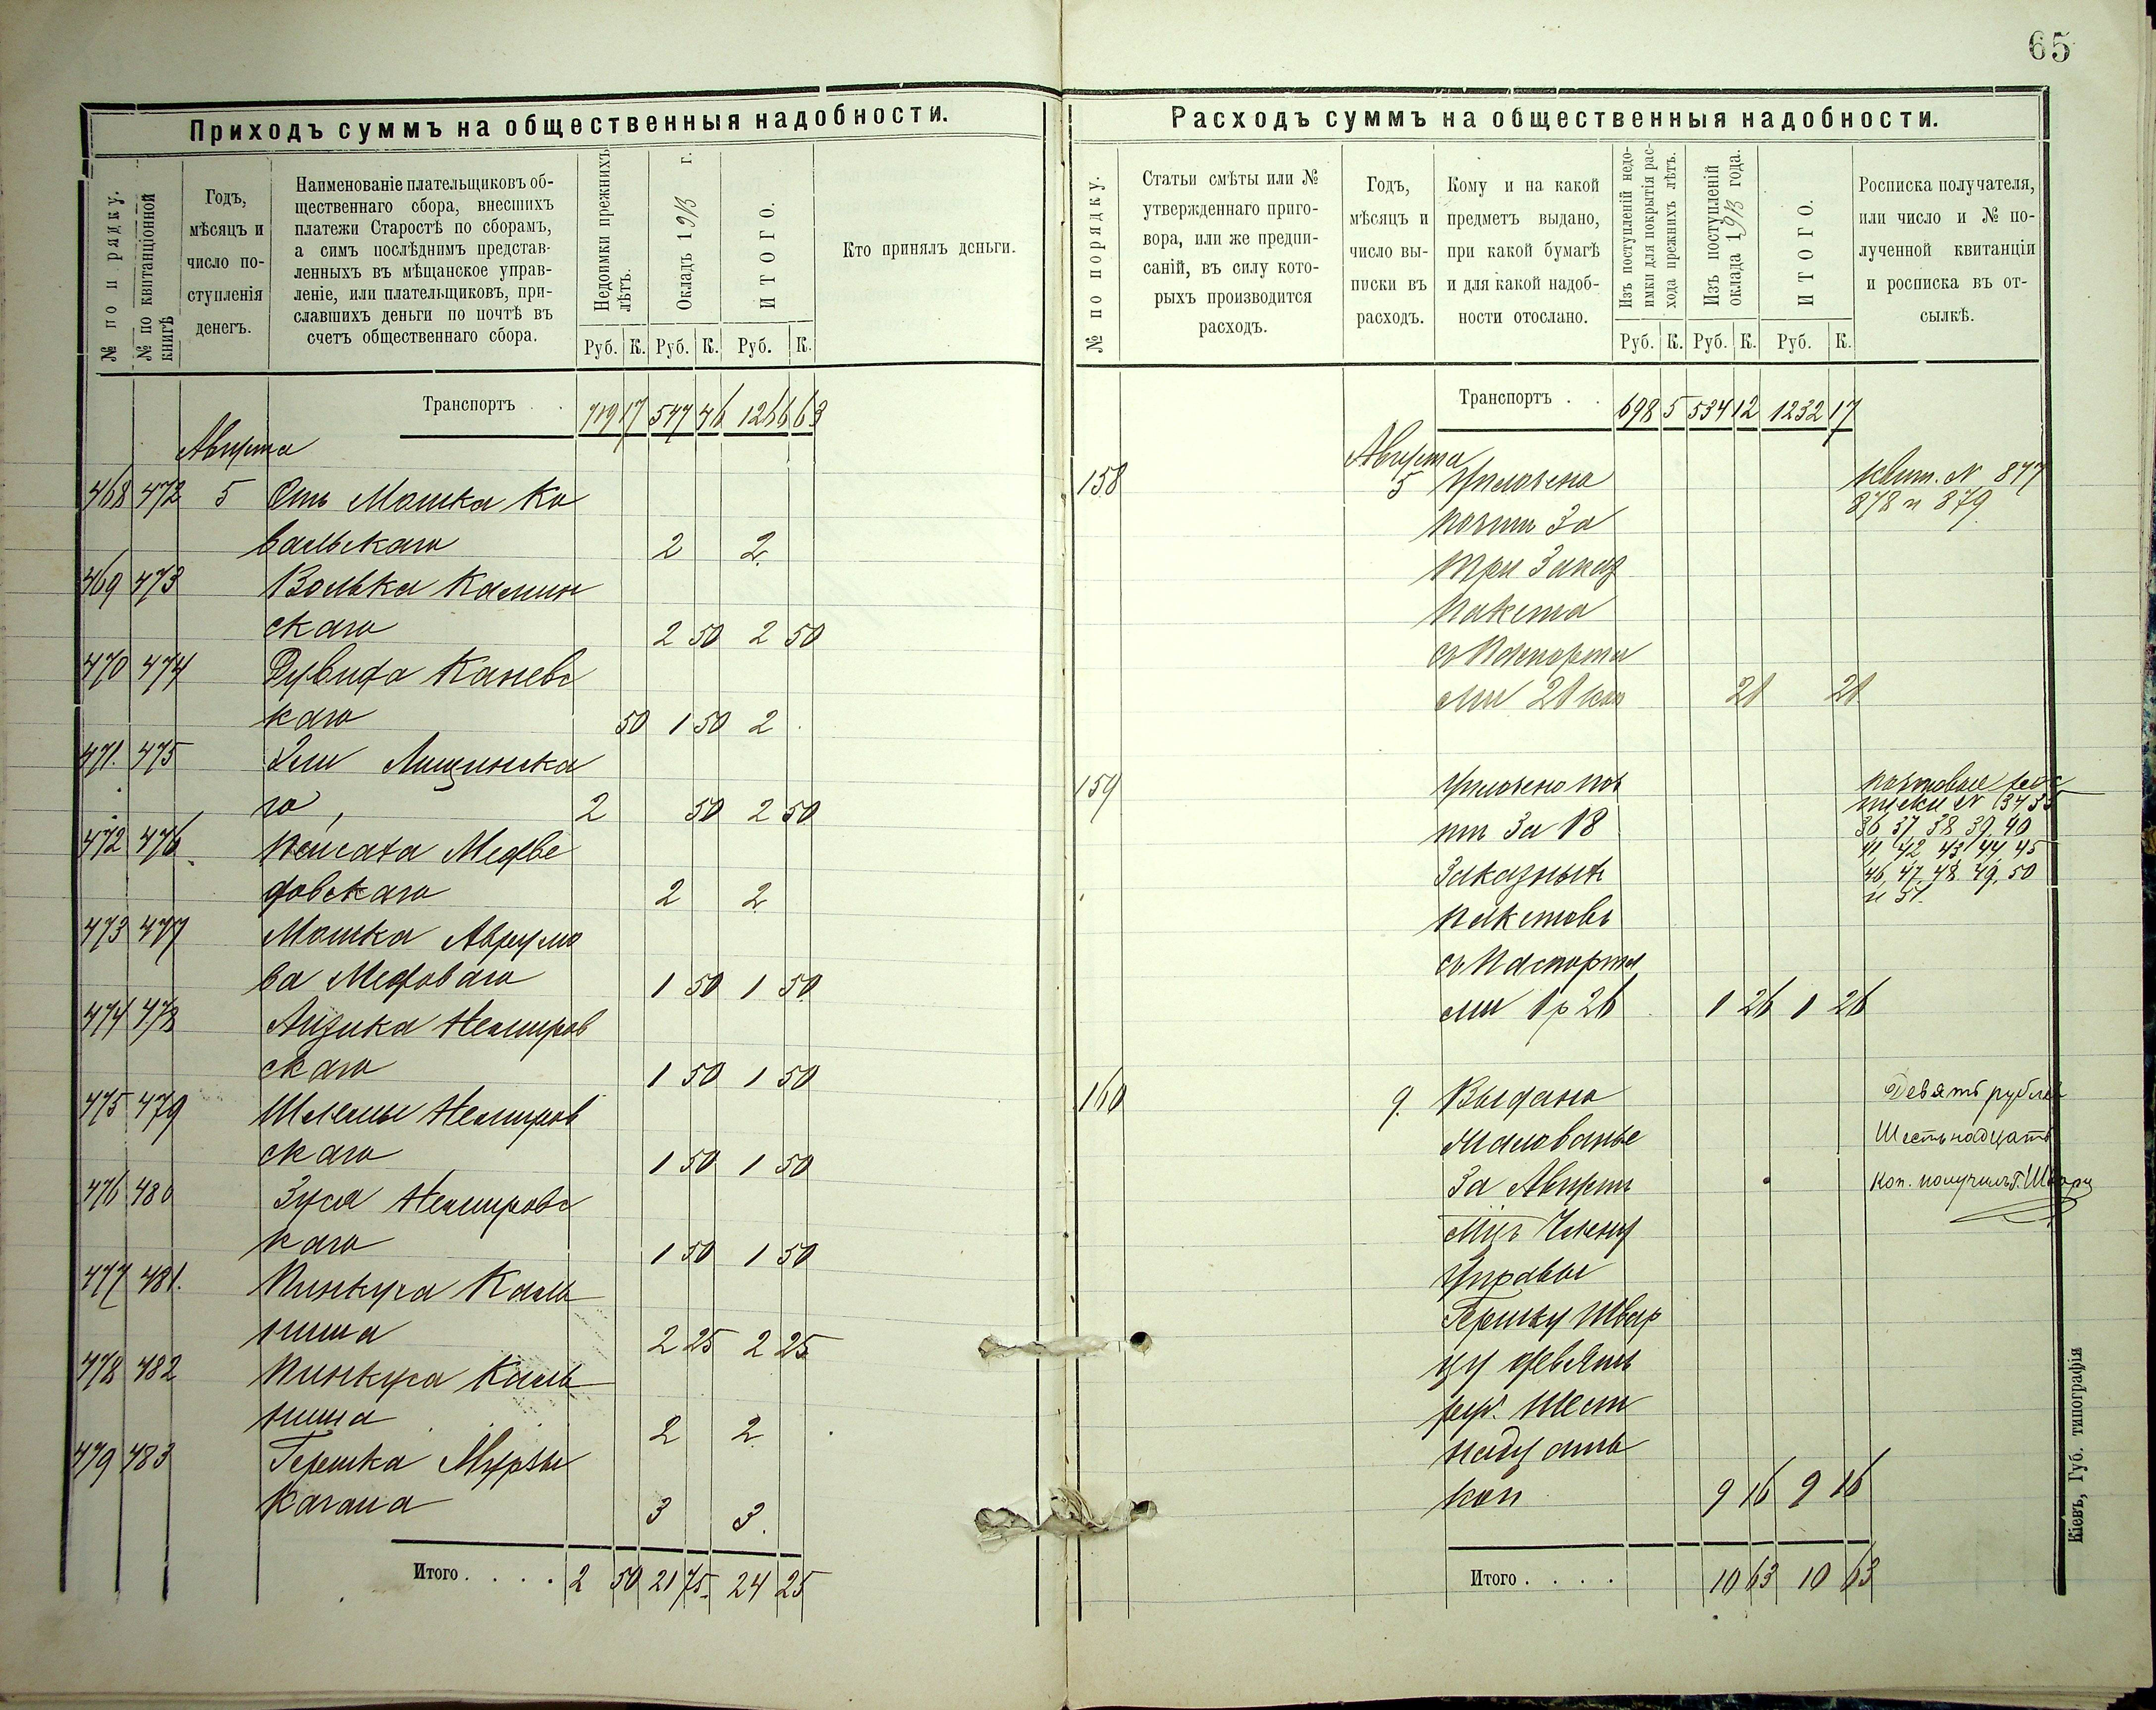 65
Приходъ суммъ на общественныя надобности.
№ по порядку.
№ по квитанціонной книгѣ
Годъ, мѣсяцъ и число поступленія денегъ.
Наименованіе плательщиковъ об-
щественнаго сбора, внесшихъ
платежи Старостѣ по сборамъ,
а симъ послѣднимъ представ-
ленныхъ въ мѣщанское управ-
леніе, или плательщиковъ, при-
славшихъ деньги по почтѣ въ
счетъ общественнаго сбора.
Недоимки прежнихъ лѣтъ.
Окладъ 1913 г.
ИТОГО.
Кто принялъ деньги.
Руб. К. Руб. К. Руб. К.
Транспортъ . . 719 17 547 46 1266 63
Августа
468 472 5 Отъ Мошка Ко
вальскаго 2 2
469 473 Волька Камин
скаго 2 50 2 50
470 474 Дувида Каневс
каго 50 1 50 2
471. 475 Эли Лищинска
го 2 50 2 50
472 476 Пейсаха Медве
довскаго 2 2
473 477 Мошка Аврумо
ва Медоваго 1 50 1 50
474 478 Айзика Немиров
скаго 1 50 1 50
475 479 Шлемы Немиров
скаго 1 50 1 50
476 480 Зуся Немировс
каго 1 50 1 50
477 481. Пинкуса Каль
ниша 2 25 2 25
478 482 Пинкуса Каль
ниша 2 2
479 483 Гершка Мурзы
Кагана 3 3.
Итого . . . . 2 50 21 75 24 25
Расходъ суммъ на общественныя надобности.
№ по порядку.
Статьи смѣты или №
утвержденнаго приго-
вора, или же предпи-
саній, въ силу кото-
рыхъ производится
расходъ.
Годъ,
мѣсяцъ и
число вы-
писки въ
расходъ.
Кому и на какой
предметъ выдано,
при какой бумагѣ
и для какой надоб-
ности отослано.
Изъ поступленій недо-
имки для покрытія рас-
хода прежнихъ лѣтъ.
Изъ поступленій
оклада 1913 года.
ИТОГО.
Росписка получателя,
или число и № по-
лученной квитанціи
и росписка въ от-
сылкѣ.
Руб. К. Руб. К. Руб. К.
Транспортъ . . 698 5 534 12 1232 17
Августа
158 5 Уплочено квит. N 877
почт за 878 и 879
три заказ
пакета
съ паспорта
ми 21 коп 21 21
159 Уплочено поч почтовые рос
тѣ за 18 писки N 34 35
36 37 38 39. 40
41 42 43 44 45
заказныхъ 46, 47, 48 49, 50
и 51.
пакетовъ
съ паспорта
ми 1 р 26 1 26 1 26
160 9. Выдано Девять рублей
жалованье Шестьнадцать
за Августъ коп. получилъ Г. Шварц
мцъ Члену
Управы
Гершку Швар
цу девять
руб. шест
надцать
коп 9 16 9 16
Итого . . . . 10 63 10 63
Кіевъ, Губ. типографія